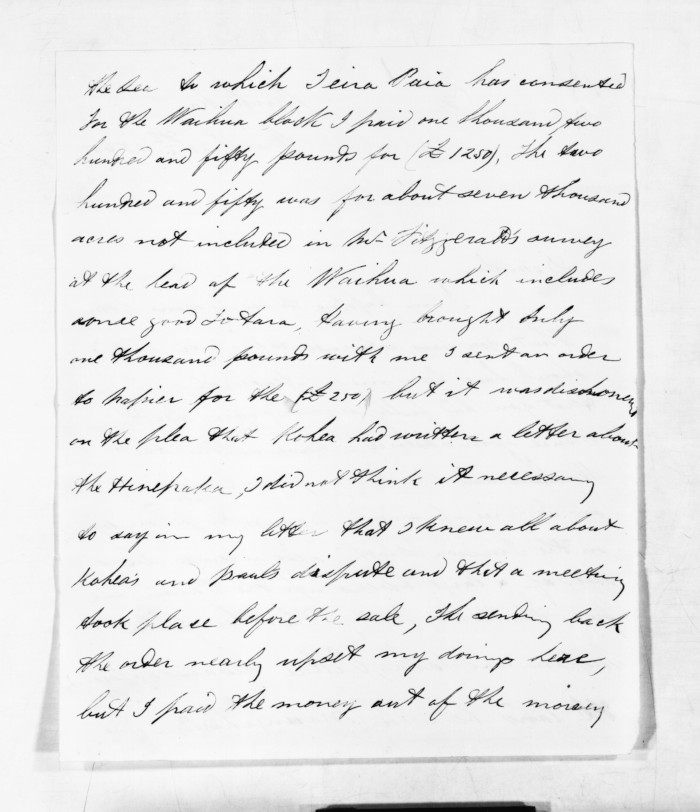 the sea to which Teira Paia has consented
For the Waihua block I paid one thousand two
hundred and fifty pounds for (£1250), The two
hundred and fifty was for about seven thousand
acres not included in Mr Fitzgerald's survey
at the head of the Waihua which includes
some good Totara, Having brought only
one thousand pounds with me I sent an order
to Napier for the (£250) but it was dishonored
on the plea that Kohea had written a letter about
the Hinepaka, I did not think it necessary
to say in my letter that I knew all about
Kohea's and Paul's dispute and that a meeting
took place before the sale, The sending back
the order nearly upset my doings here,
but I paid the money out of the money